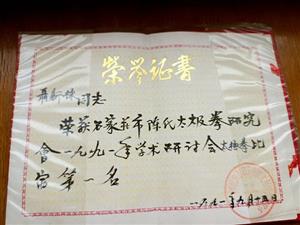 荣誉证书
同志
荣获石家庄市陈氏太极拳研究
会一九九一年学术研讨会太极拳比
赛第一名
一九九一年九月十五日